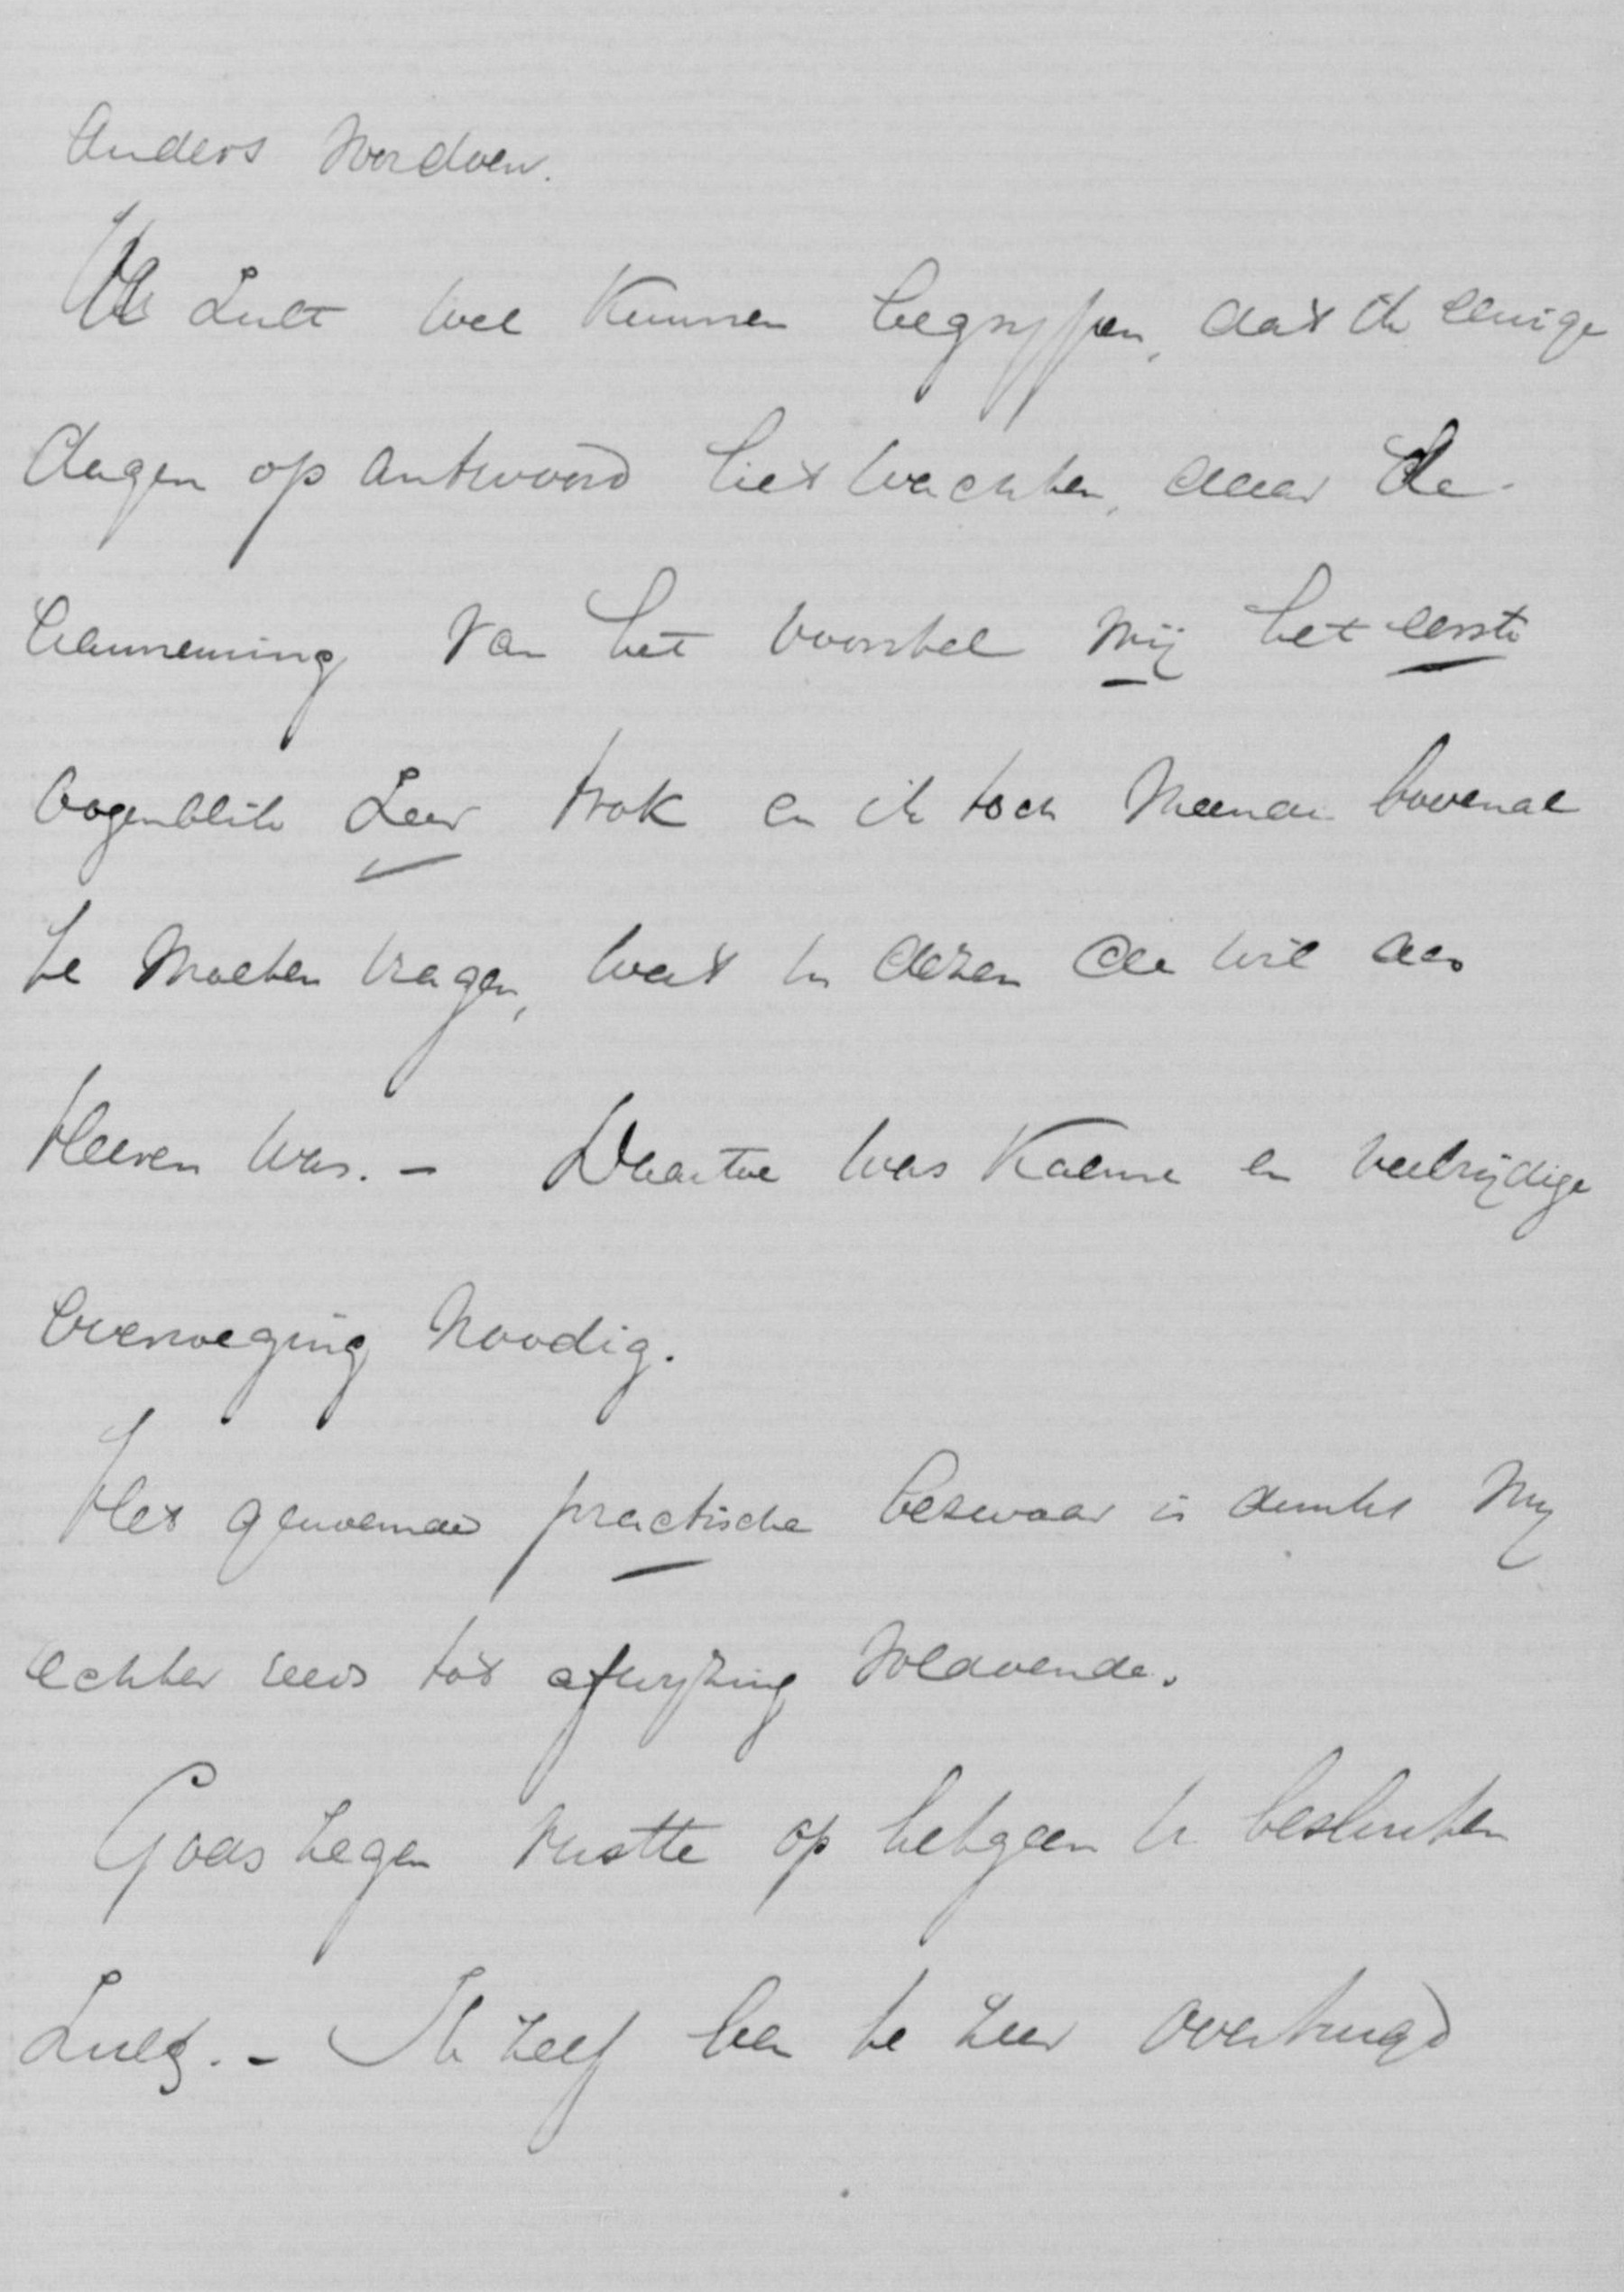 anders voordoen.
U zult wel kunnen begrijpen, dat ik eenige
dagen op antwoord liet wachten, daar de
aanneming van het voorstel mij het eerste
oogenblik zeer trok en ik toch meende bovenal
te moeten vragen, wat in dezen de wil des
Heeren was. – Daartoe was kalme en veelzijdige
overweging noodig.
Het genoemde practische bezwaar is dunkt mij
echter reeds tot afwijzing voldoende.
Gods zegen ruste op hetgeen U besluiten
zult. – Ik zelf ben te zeer overtuigd